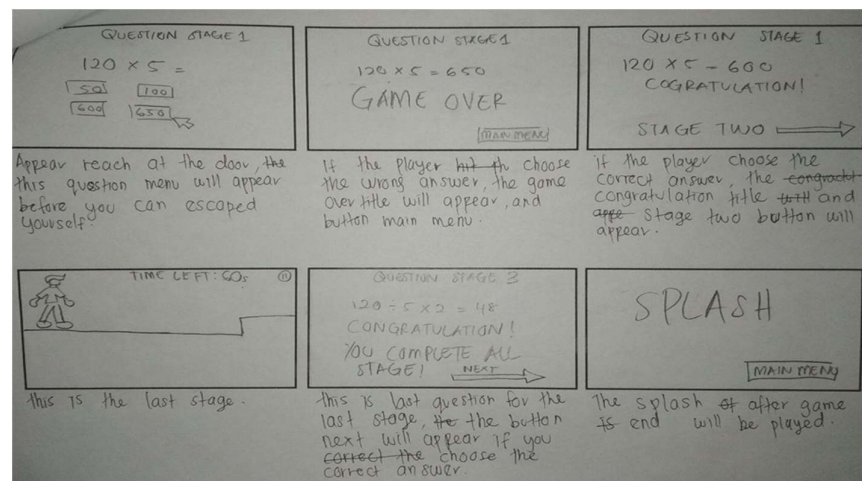 QUESTION STAGE 1
120 × 5 =
50 100
600 650
Appear reach at the door, the
this question menu will appear
before you can escaped
yourself.
QUESTION STAGE 1
120 × 5 = 650
GAME OVER
MAIN MENU
If the player hit th choose
the wrong answer, the game
over title will appear, and
button main menu.
QUESTION STAGE 1
120 × 5 = 600
COGRATULATION!
STAGE TWO
if the player choose the
correct answer, the congract
congratulation title will and
appe stage two button will
appear.
TIME LEFT: 60s
this is the last stage.
QUESTION STAGE 3
120 ÷ 5 × 2 = 48
CONGRATULATION!
YOU COMPLETE ALL
STAGE! NEXT
this is last question for the
last stage, the the button
next will appear if you
correct the choose the
correct answer.
SPLASH
MAIN MENU
The splash of after game
is end will be played.